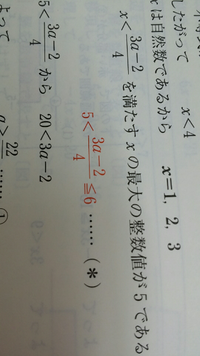 したがって x<4
は自然数であるから x=1, 2, 3
x<\frac{3a-2}{4} を満たす x の最大の整数値が5である
5<\frac{3a-2}{4}≦6 ……(*)
5<\frac{3a-2}{4} から 20<3a-2
よって a>22 …… ①